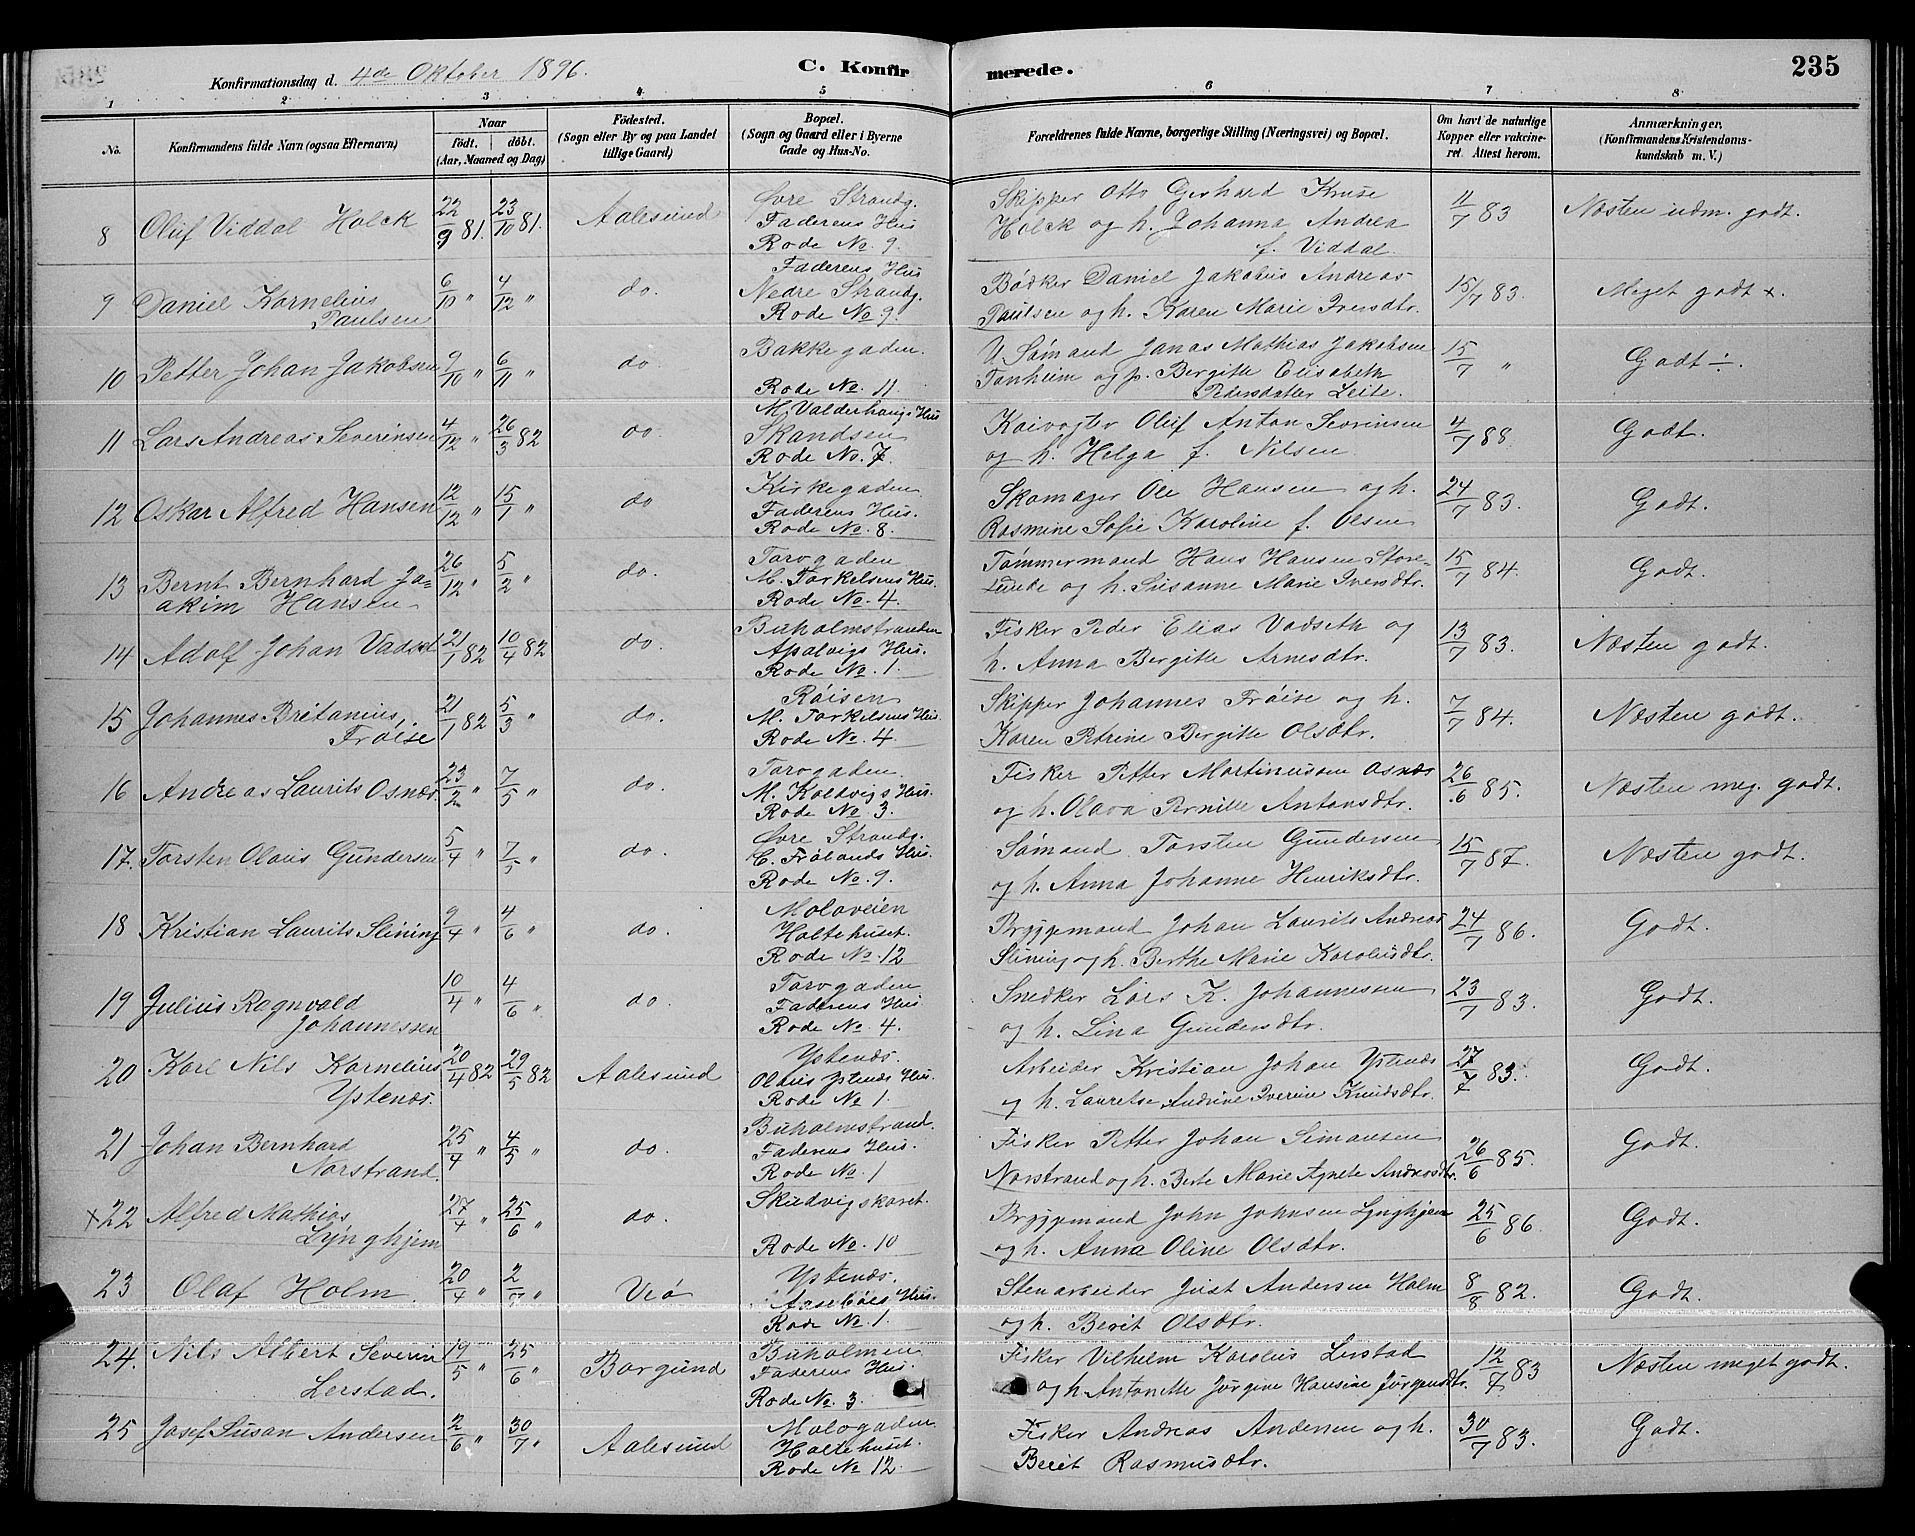 Konfirmationsdag d. 4de Oktober 1896. C. Konfirmerede. 235
1 2 3 4 5 6 7 8
No. Konfirmandens fulde Navn (ogsaa Efternavn) Naar födt. döbt. (Aar, Maaned og Dag) Födested. (Sogn eller By og paa Landet tillige Gaard) Bopæl. (Sogn og Gaard eller i Byerne Gade og Hus-No. Forældrenes fulde Navne, borgerlige Stilling (Næringsvei) og Bopæl. Om havt de naturlige Kopper eller vaccineret. Attest herom. Anmærkninger, (Konfirmandens Kristendomskundskab m. V.)
8 Oluf Viddal Holck 22/9 81. 23/10 81. Aalesund Øvre Strandg. Faderens Hus Rode No. 9. Skipper Otto Gerhard Kruse Holck og h. Johanna Andrea f. Viddal. 11/7 83 Næsten udm. godt.
9 Daniel Kornelius Paulsen 6/10 " 4/12 " do. Faderens Hus Nedre Strandg. Rode No 9. Bødker Daniel Jakobus Andreas Paulsen og h. Karen Marie Iversdtr. 15/7 83. Meget godt +.
10 Petter Johan Jakobsen 9/10 " 6/11 " do. Bakkegaden. Rode No. 11 Sømand Jonas Mathias Jakobsen Tonheim og p. Bergitte Elisabeth Pedersdatter Leite. 15/7 " Godt ÷.
11 Lars Andreas Severinsen 4/12 " 26/3 82 do M. Valderhaugs Hus Skandsen Rode No. 7. Kaivogter Oluf Anton Severinsen og h. Helga f. Nilsen 4/7 88 Godt.
12 Oskar Alfred Hansen 12/12 " 15/1 " do Kirkegaden Faderens Hus. Rode No. 8. Skomager Ole Hansen og h. Rasmine Sofie Karoline f. Olsen 24/7 83. Godt.
13 Bernt Bernhard Joakim Hansen 26/12 " 5/2 " do. Tarogaden M. Torkelsens Hus. Rode No. 4. Tømmermand Hans Hansen Storelunde og h. Susanne Marie Iversdtr. 15/7 84. Godt.
14 Adolf Johan Vadset 21/1 82 10/4 82 do. Buholmstranden Apalvigs Hus. Rode No. 1. Fisker Peder Elias Vadseth og h. Anna Bergitte Arnesdtr. 13/7 83. Næsten godt.
15 Johannes Britanius, Frøise 21/1 82 5/3 " do. Røisen M. Torkelsens Hus. Rode No. 4 Skipper Johannes Frøise og h. Karen Petrine Bergitte Olsdtr. 7/7 84. Næsten godt.
16 Andreas Laurits Osnæs. 23/2 " 7/5 " do. Tarogaden. M. Koldvigs Hus. Rode No. 3. Fisker Petter Martinusen Osnæs og h. Olava Pernille Antonsdtr. 26/6 85. Næsten meg. godt.
17. Torsten Olaus Gundersen 5/4 " 7/5 " do. Øvre Strandg. C. Frølands Hus. Rode No. 9. Sømand Torsten Gundersen og h. Anna Johanne Henriksdtr. 15/7 87. Næsten godt.
18 Kristian Laurits Slining 9/4 " 4/6 " do. Moloveien Holtehuset. Rode No. 12 Bryggemand Johan Laurits Andreas Slining og h. Berthe Marie Karolusdtr. 24/7 86. Godt.
19 Julius Ragnvald Johannessen 10/4 " 4/6 " do. Tarogaden Faderens Hus Rode No. 4. Snedker Lars K. Johannessen og h. Lina Gundersdtr. 23/7 83. Godt.
20 Karl Nils Kornelius Ystenæs. 20/4 82 29/5 82 Aalesund Ystenæs. Olaus Ystenæs Hus. Rode No. 1 Arbeider Kristian Johan Ystenæs og h. Lauretse Andrine Iverine Knudsdtr. 27/7 83. Godt.
21 Johan Bernhard Norstrand. 25/4 " 4/5 " do. Buholmstrand. Faderens Hus. Rode No. 1 Fisker Petter Johan Simonsen Norstrand og h. Berte Marie Agnete Andreasdtr. 26/6 85. Godt.
x22 Alfred Mathias Lynghjem 27/4 " 25/6 " do. Skudvigskaret. Rode No. 10 Bryggemand John Johnsen Lynghjem og h. Anna Oline Olsdtr. 25/6 86. Godt.
23 Olaf Holm. 20/4 " 2/7 " Verø Ystenæs. Hus. Rode No. 1. Stenarbeider Just Andersen Holm og h. Berit Olsdtr. 8/8 82. Godt.
24. Nils Albert Severin Lerstad. 19/5 " 25/6 " Borgund Buholmen Faderens Hus. Rode No. 3 Fisker Vilhelm Karolus Lerstad og h Antonette Jørgine Hansine Jørgensdtr. 12/7 83 Næsten meget godt.
25 Josef Susan Andersen 2/6 " 30/7 " Aalesund Mologaden Holtehuset. Rode No 12. Fisker Andreas Andersen og h. Berit Rasmusdtr. 30/7 83. Godt.